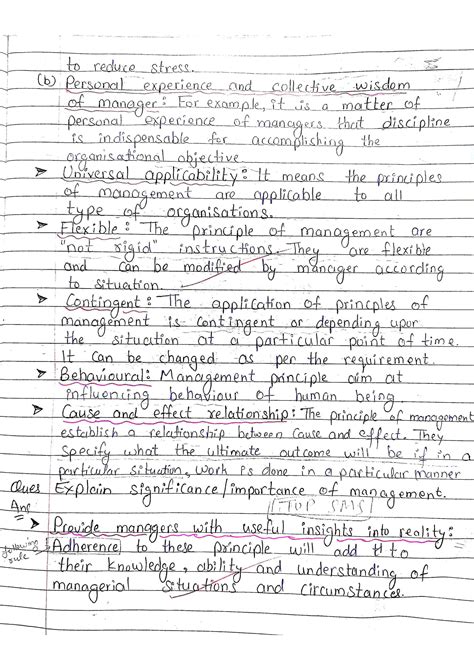 to reduce stress.
(b) Personal experience and collective wisdom
of manager: For example, it is a matter of
personal experience of managers that discipline
is indispensable for accomplishing the
organisational objective
➤ Universal applicability: It means the principles
of management are applicable to all
type of organisations.
➤ Flexible: The principle of management are
"not rigid" instructions. They are flexible
and can be modified by manager according
to situation.
➤ Contingent: The application of princples of
management is contingent or depending upon
the situation at a particular point of time.
It can be changed as per the requirement.
➤ Behavioural: Management principle aim at
influencing behaviour of human being.
➤ Cause and effect relationship: The principle of management
establish a relationship between cause and effect. They
specify what the ultimate outcome will be if in a
particular situation, work is done in a particular manner
Ques Explain significance/importance of management.
Ans [TUP SMS]
➤ Provide managers with useful insights into reality:
following rule Adherence to these principle will add to
their knowledge, ability and understanding of
managerial situations and circumstances.